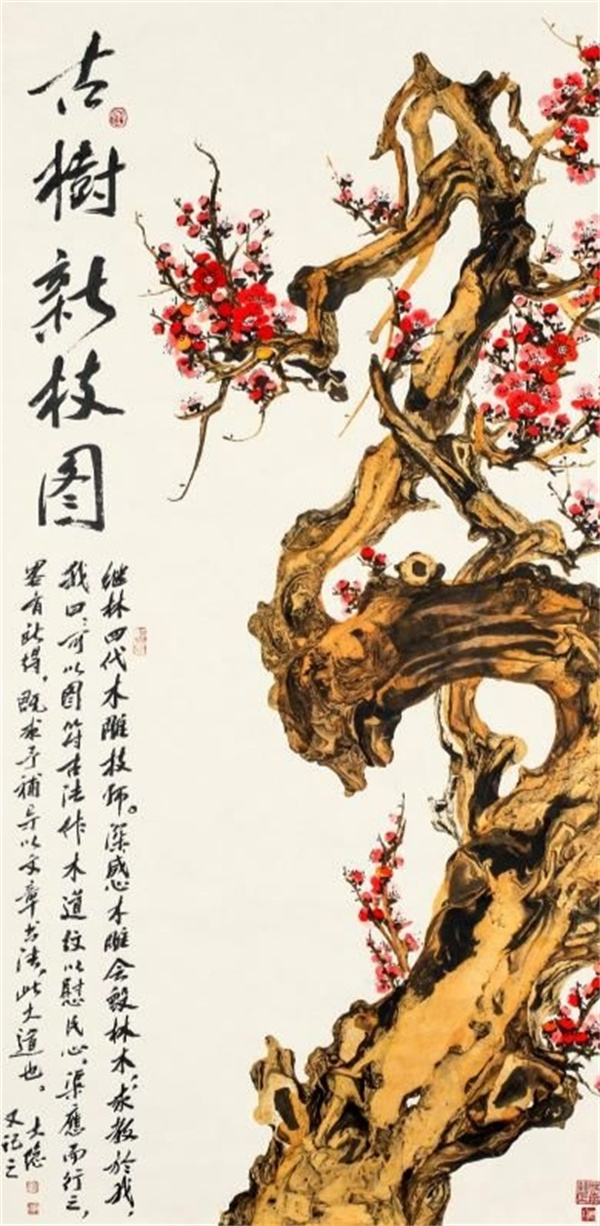 古樹新枝图
继林四代木雕技师。深感木雕会毁林木,求教於我,
我曰:可以图符古法作木道纹以慰民心,渠應而行之,
畧有所得,既求予補导以文章书法,此大道也。大隐
又记之